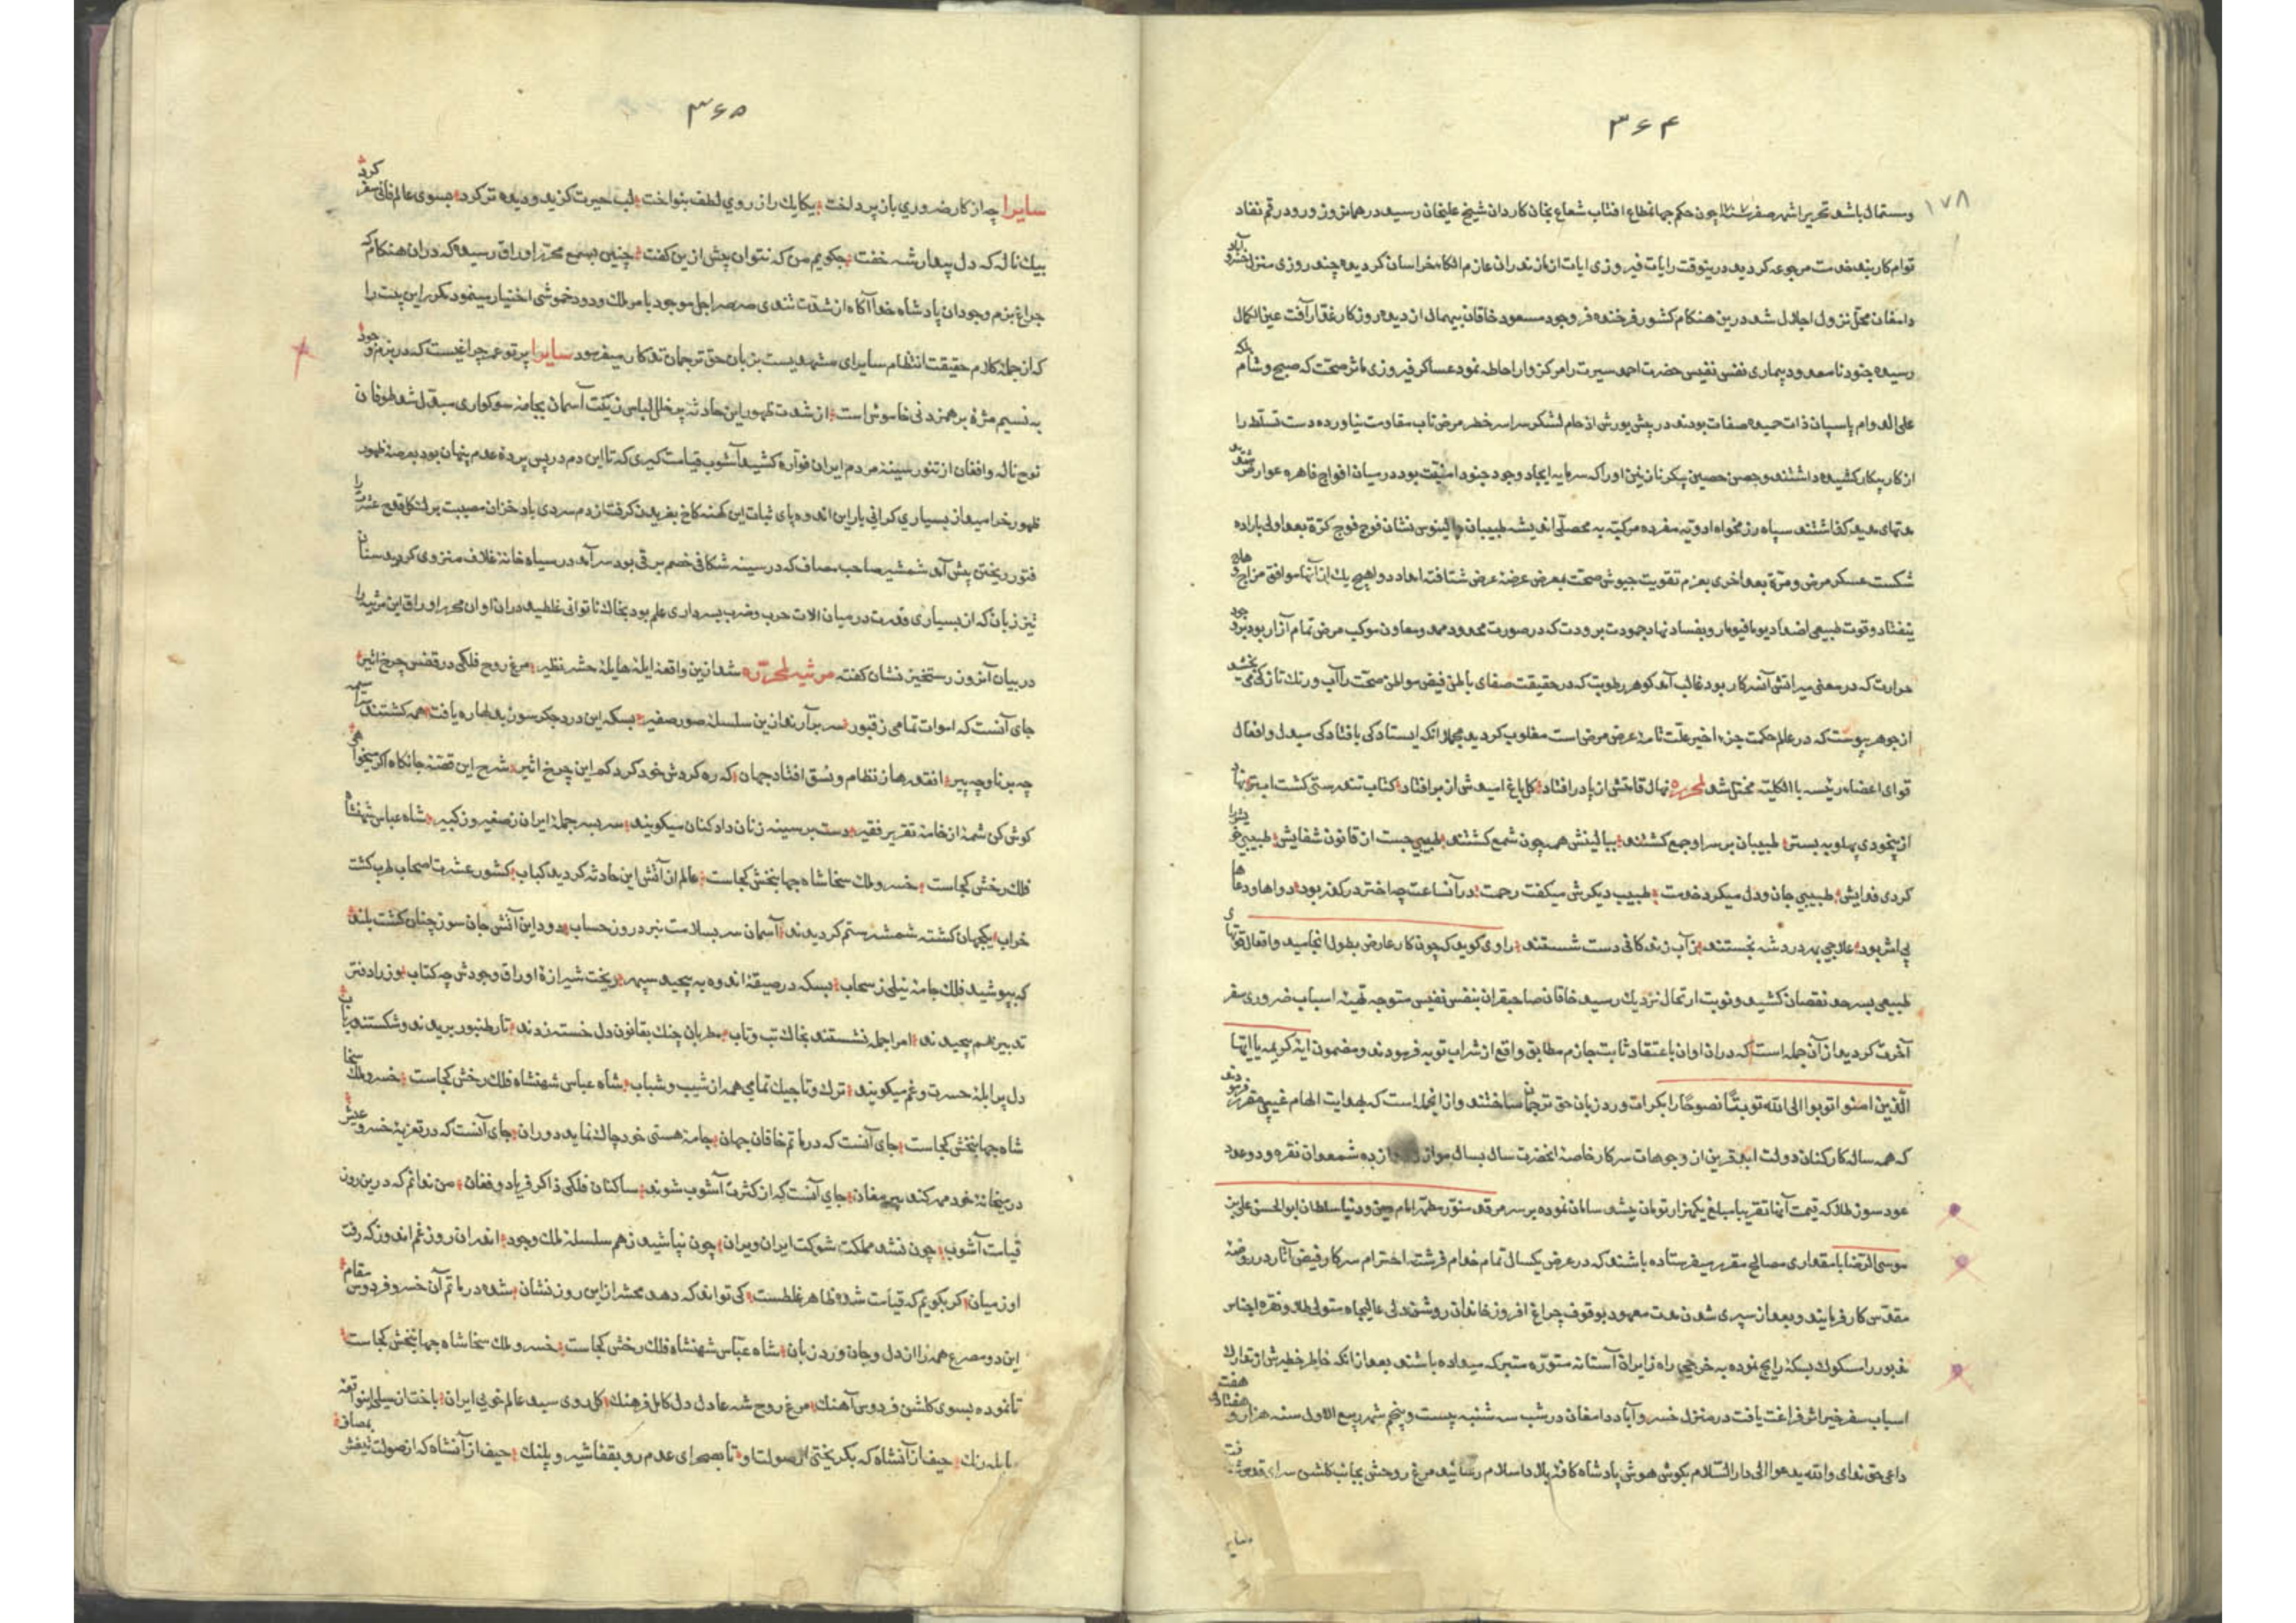 ۳۶۴
۱۷۸
و مستمال باشد تحریرا شهر صفر چون حکم جهانمطاع افتاب شعاع بخان کاردان شیخ علیخان رسید در همانروز ورود رقم نفاد
توام کاربند خدمت مرجوعه کردید درینوقت رایات فیروزی ایات از مازندران عازم الکاء خراسان کردیده چند روزی منزل خسرو آباد
دامغان محل نزول اجلال شد درین هنکام کشور فرخنده فر وجود مسعود خاقان بیهمال از دیده روزکار غدار آفت عین الکمال
رسیده جنود نامعدود بیماری نفس نفیس حضرت احمد سیرت را مرکزوار احاطه نمود عساکر فیروزی ماثر صحت که صبح و شام بلکه
علی الدوام پاسبان ذات حمیده صفات بودند در پیش یورش ازدحام لشکر سراسر خطر مرض تاب مقاومت نیاورده دست تسلط را
از کار پیکار کشیده داشتند و حصن حصین پیکر نازنین او را که سرمایه ایجاد وجود جنود امنیت بود در میان افواج قاهره عوارض شدند
مدتهای مدید کذاشتند سپاه رزمخواه ادویه مفرده مرکبه به محصلی اندیشه طبیبان جالینوس نشان فوج فوج کرة بعد اولی باراده
شکست عسکر مرض و مرة بعد اخری بعزم تقویت جیوش صحت بمعرض عرضه عرض شتافته امداد دوا هیچ یک از آنها موافق مزاج وهاج
نیفتاد و قوت طبیعی اضداد یوما فیوما رو بفساد نهاد جمودت برودت که در صورت محدود ممد و معاون موکب مرض تمام آزار بود بر وجود
حرارت که در معنی میر آتش آنسرکار بود غالب آمد کوهر رطوبت که در حقیقت صفای باطن فیض مواطن صحت را آب و رنک تازکی می بخشد
از جوهر یبوست که در عالم حکمت جزء اخیر علت تامه عرض مرض است مغلوب کردید مجملا انکه ایستادکی بافتادکی مبدل و افعال
قوای اعضاء رئیسه بالکلیه مختل شد لمحرره نهال قامتش از پا در افتاد کل باغ امیدش از بر افتاد کتاب تندرستی کشت ابتر نهاد
از بیخودی پهلو به بستر طبیبان بر سر او جمع کشتند ببالینش همه چون شمع کشتند طبیبی جست از قانون شفایش طبیبی
کردی فدایش طبیبی جان و دل میکرد خدمت طبیب دیکرش میکفت رحمت در آنساعت چاختر در کذر بود دواها و دعاها
بی اثر بود علاجی بهر درد شه نجستند ز آب زندکانی دست شستند راوی کوید که چون کار عارض بطول انجامید و افعال قوتهای
طبیعی بسرحد نقصان کشید و نوبت ارتحال نزدیک رسید خاقان صاحبقران بنفس نفیس متوجه تهیه اسباب ضروری سفر
آخرت کردید از آن جمله است که دران اوان باعتقاد ثابت جازم مطابق واقع از شراب توبه فرمودند و مضمون ایه کریمه یا ایها
الذین امنوا توبوا الی الله توبتا نصوحا را بکرات ورد زبان حق ترجمان ساختند و از انجمله است که بهدایت الهام غیبی مقرر فرمودند
که همه ساله کارکنان دولت ابدقرین از وجوهات سرکار خاصه انحضرت سال بسال موازی ده شمعدان نقره و دو عدد
عود سوز طلا که قیمت آنها تقریبا مبلغ یکهزار تومان شود سامان نموده بر سر مرقد منور مطهر امام دین و دنیا سلطان ابو الحسن علی بن
موسی الرضا با مقداری مصالح مقرر میفرستاده باشند که در عرض یکسال تمام خدام فرشته احترام سرکار فیض آثار در روضه
مقدس کار فرمایند و بعد از سپری شدن مدت معهود بوقوف چراغ افروز خاندان روشندلی عالیجاه متولی طلا و نقره اجناس
مذبور را مسکوک بسکه رایج نموده به خرجی راه زایران آستانه متوره متبرکه میداده باشند بعد از انکه خاطر خطیرش از تدارک
اسباب سفر خیر اثر فراغت یافت در منزل خسرو آباد دامغان در شب سه شنبه بیست و پنجم شهر ربیع الاول سنه هزار و هفتاد و هفت
داعی حق ندای و الله یدعوا الی دار السلام بکوش هوش پادشاه کافه بلاد اسلام رسانید مرغ روحش بجانب کلشن سرای قدس
۳۶۵
سایرا چه از کار ضروری باز پرداخت بیکایک را ز روی لطف بنواخت لب حیرت کزید و دیده تر کرد بسوی عالم فانی سفر کرد
بیک ناله که دل بیدار شه خفت چکویم من که نتوان بیش ازین کفت چنین بسمع محرر اوراق رسیده که دران هنکام که
چراغ بزم وجودان پادشاه خدا آکاه از شدت تندی صرصر اجل موجود بامر ملک ودود خموشی اختیار مینمود مکرر این بیت را
که از جمله کلام حقیقت انتظام سایرای مشهدیست بزبان حق ترجمان تذکار میفرمود سایرا پرتو عمر چراغیست که در بزم وجود
به نسیم مژه بر همزدنی خاموش است از شدت ظهور این حادثه پر خلل لباس زینت آسمان بجامه سوکواری مبدل شد طوفان
نوح ناله و افغان از تنور سینه مردم ایران فواره کشید آشوب قیامت کبری که تا این دم در پس پرده عدم پنهان بود بعرصه ظهور
ظهور خرامید از بسیاری کرانی بار این اندوه پای ثبات این کهنه کاخ بفریدن کرفت از دم سردی باد خزان مصیبت برک کل قدح عشرت را
فتور ریختن پیش آمد شمشیر صاحب مصاف که در سینه شکافی خصم برقی بود سرآمد در سیاه خانه غلاف منزوی کردید سنان
تیز زبان که از بسیاری قدرت در میان الات حرب و ضرب بسرداری علم بود بخاک ناتوانی غلطید دران اوان محرر اوراق این مرثیه را
در بیان آنروز رستخیز نشان کفته مرثیه لمحرره شد ازین واقعه ایله هایله حشر نظیر مرغ روح فلکی در قفس چرخ اثیر
جای آنست که اموات تمامی ز قبور سر برآرند ازین سلسله صور صفیر بسکه این درد جکرسوز بدلها ره یافت همه کشتند سراسیمه
چه برنا و چه پیر افتد رها ز نظام و نسق افتاد جهان که ره کردش خود کرد کم این چرخ اثیر شرح این قصه جانکاه اکر میخواهی
کوش کن شمه از خامه تقریر فقیر دست بر سینه زنان دادکنان میکویند سربسر جمله ایران ز صغیر و ز کبیر شاه عباس شهنشاه
فلک رخش کجاست خسرو ملک سخا شاه جهانبخش کجاست عالم از آتش این حادثه کردید کباب کشور عشرت اصحاب طرب کشت
خراب یکجهان کشته شمشیر ستم کردیدند آسمان سر بسلامت نبرد روز حساب دود این آتش جان سوز چنان کشت بلند
که بپوشید فلک جامه نیلی ز سحاب بسکه در صیقه اندوه به پیچید سپهر ریخت شیرازه اوراق وجودش چه کتاب
تدبیر بهم پیچیدند امرا جمله نشستند بخاک تب و تاب مطربان چنک بقانون دل خسته زدند تار طنبور بریدند و شکستند رباب
دل پر ابله حسرت و غم میکویند ترک و تاجیک تمامی همه از شیب و شباب شاه عباس شهنشاه فلک رخش کجاست خسرو ملک سخا
شاه جهانبخش کجاست جای آنست که در ماتم خاقان جهان جامه هستی خود چاک نماید دوران جای آنست که در تعزیه خسرو عیش
در میخانه خود مهر کند پیر مغان جای آنست که از کثرت آشوب شوند ساکنان فلکی ذاکر فریاد و فغان من ندانم که درین روز
قیامت آشوب چون نشد مملکت شوکت ایران ویران چون نپاشید زهم سلسله ملک وجود اندران روز غم اندوز که رفت
او ز میان کر بکویم که قیامت شده ظاهر غلطست کی تواند که دهد محشر از این روز نشان شده در ماتم آن خسرو فردوس مقام
این دو مصرع همه را از دل و جان ورد زبان شاه عباس شهنشاه فلک رخش کجاست خسرو ملک سخا شاه جهانبخش کجاست
تا نموده بسوی کلشن فردوس آهنک مرغ روح شه عادل دل کامل فرهنک کل روی سبد عالم خوبی ایران باخت از سیلی این واقعه
حیف از آنشاه که بکریختی از صولت او تا بصحرای عدم رو بقفا شیر و پلنک حیف از آنشاه که از صولت تیغش بمصاف